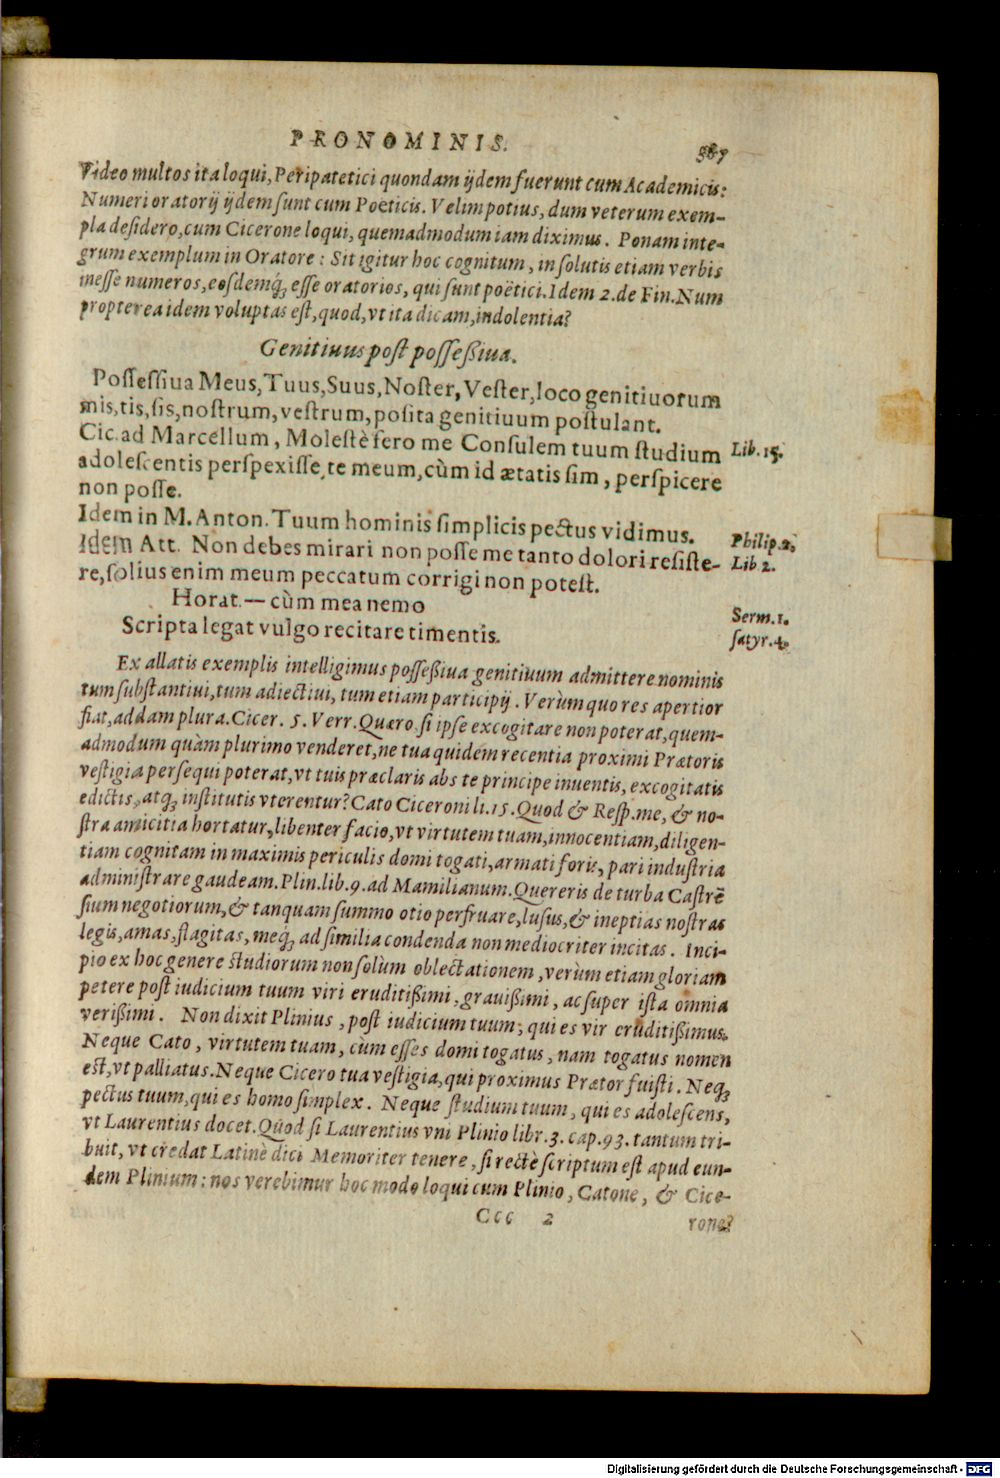 PRONOMINIS. 387
Video multos ita loqui, Peripatetici quondam ijdem fuerunt cum Academicis:
Numeri oratorij ijdem sunt cum Poëticis. Velim potius, dum veterum exem-
pla desidero, cum Cicerone loqui, quemadmodum iam diximus. Ponam inte-
grum exemplum in Oratore: Sit igitur hoc cognitum, in solutis etiam verbis
inesse numeros, eosdemq́; esse oratorios, qui sunt poëtici. Idem 2. de Fin. Num
propterea idem voluptas est, quod, vt ita dicam, indolentia?
Genitiuus post possessiua.
Possessiua Meus, Tuus, Suus, Noster, Vester, loco genitiuorum
mis, tis, sis, nostrum, vestrum, posita genitiuum postulant.
Cic. ad Marcellum, Molestè fero me Consulem tuum studium Lib. 15.
adolescentis perspexisse, te meum, cùm id ætatis sim, perspicere
non posse.
Idem in M. Anton. Tuum hominis simplicis pectus vidimus. Philip. 2.
Idem Att. Non debes mirari non posse me tanto dolori resiste- Lib 2.
re, solius enim meum peccatum corrigi non potest.
Horat. — cùm mea nemo Serm. 1.
Scripta legat vulgo recitare timentis. satyr. 4.
Ex allatis exemplis intelligimus possessiua genitiuum admittere nominis
tum substantiui, tum adiectiui, tum etiam participij. Verùm quo res apertior
fiat, addam plura. Cicer. 5. Verr. Quæro, si ipse excogitare non poterat, quem-
admodum quàm plurimo venderet, ne tua quidem recentia proximi Prætoris
vestigia persequi poterat, vt tuis præclaris abs te principe inuentis, excogitatis
edictis, atq; institutis vterentur? Cato Ciceroni li. 15. Quod & Resp. me, & no-
stra amicitia hortatur, libenter facio, vt virtutem tuam, innocentiam, diligen-
tiam cognitam in maximis periculis domi togati, armati foris, pari industria
administrare gaudeam. Plin. lib. 9. ad Mamilianum. Quereris de turba Castrẽ
sium negotiorum, & tanquam summo otio perfruare, lusus, & ineptias nostras
legis, amas, flagitas, meq́; ad similia condenda non mediocriter incitas. Inci-
pio ex hoc genere studiorum non solùm oblectationem, verùm etiam gloriam
petere post iudicium tuum viri eruditissimi, grauissimi, ac super ista omnia
verissimi. Non dixit Plinius, post iudicium tuum, qui es vir eruditissimus.
Neque Cato, virtutem tuam, cùm esses domi togatus, nam togatus nomen
est, vt palliatus. Neque Cicero tua vestigia, qui proximus Prætor fuisti. Neq;
pectus tuum, qui es homo simplex. Neque studium tuum, qui es adolescens,
vt Laurentius docet. Quòd si Laurentius vni Plinio libr. 3. cap. 93. tantum tri-
buit, vt credat Latinè dici Memoriter tenere, si rectè scriptum est apud eun-
dem Plinium: nos verebimur hoc modo loqui cum Plinio, Catone, & Cice-
Ccc 2 rone?
Digitalisierung gefördert durch die Deutsche Forschungsgemeinschaft - DFG